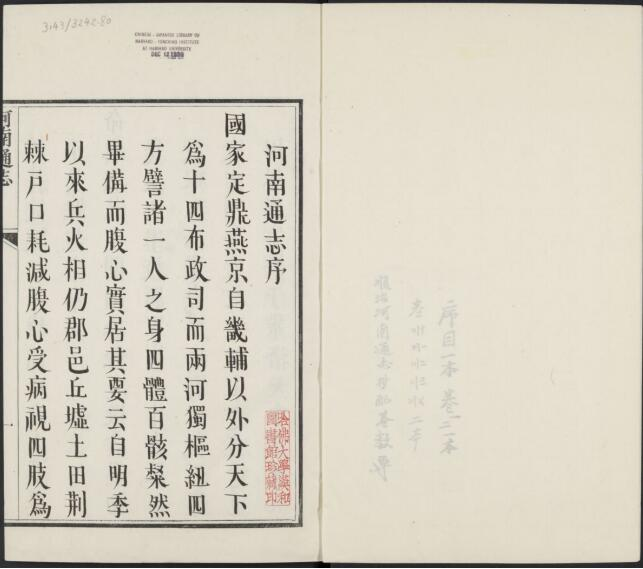 序目一本 卷一二一本
河南通志序
國家定鼎燕京自畿輔以外分天下
爲十四布政司而兩河獨樞紐四
方譬諸一人之身四體百骸粲然
畢備而腹心實居其要云自明季
以來兵火相仍郡邑丘墟土田荆
棘戸口耗減腹心受病視四肢爲
河南通志
一
哈佛大學漢和圖書館珍藏印
3143/3242.80
CHINESE - JAPANESE LIBRARY OF
HARVARD - YENCHING INSTITUTE
AT HARVARD UNIVERSITY